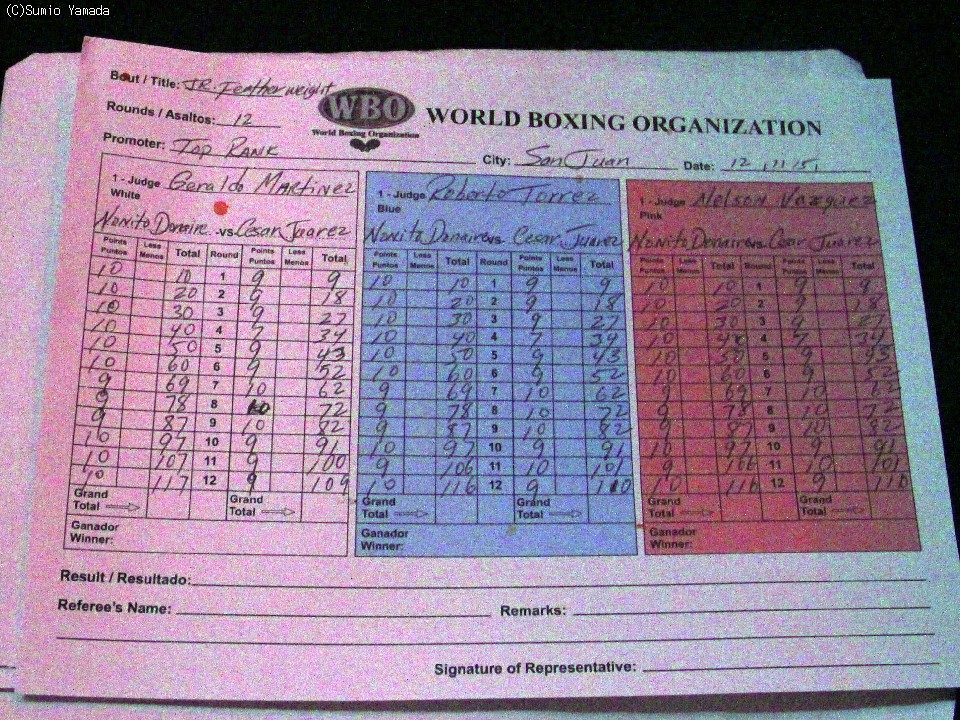 (C)Sumio Yamada
Bout / Title: JR. Featherweight
Rounds / Asaltos: 12
WBO
World Boxing Organization
WORLD BOXING ORGANIZATION
Promoter: TOP RANK City: San Juan Date: 12 / 11 / 15
1 - Judge Geraldo Martinez 1 - Judge Roberto Torrez 1 - Judge Nelson Vazquez
White Blue Pink
Nonito Donaire -vs- Cesar Juarez Nonito Donaire vs Cesar Juarez Nonito Donaire vs Cesar Juarez
Points Puntos Less Menos Total Round Points Puntos Less Menos Total Points Puntos Less Menos Total Round Points Puntos Less Menos Total Points Puntos Less Menos Total Round Points Puntos Less Menos Total
10 10 1 9 9 10 10 1 9 9 10 10 1 9 9
10 20 2 9 18 10 20 2 9 18 10 20 2 9 18
10 30 3 9 27 10 30 3 9 27 10 30 3 9 27
10 40 4 7 34 10 40 4 7 34 10 40 4 7 34
10 50 5 9 43 10 50 5 9 43 10 50 5 9 43
10 60 6 9 52 10 60 6 9 52 10 60 6 9 52
9 69 7 10 62 9 69 7 10 62 9 69 7 10 62
9 78 8 10 72 9 78 8 10 72 9 78 8 10 72
9 87 9 10 82 9 87 9 10 82 9 87 9 10 82
10 97 10 9 91 10 97 10 9 91 10 97 10 9 91
10 107 11 9 100 9 106 11 10 101 9 106 11 10 101
10 117 12 9 109 10 116 12 9 110 10 116 12 9 110
Grand Total Grand Total Grand Total Grand Total Grand Total Grand Total
Ganador Ganador Ganador
Winner: Winner: Winner:
Result / Resultado:
Referee's Name: Remarks:
Signature of Representative: